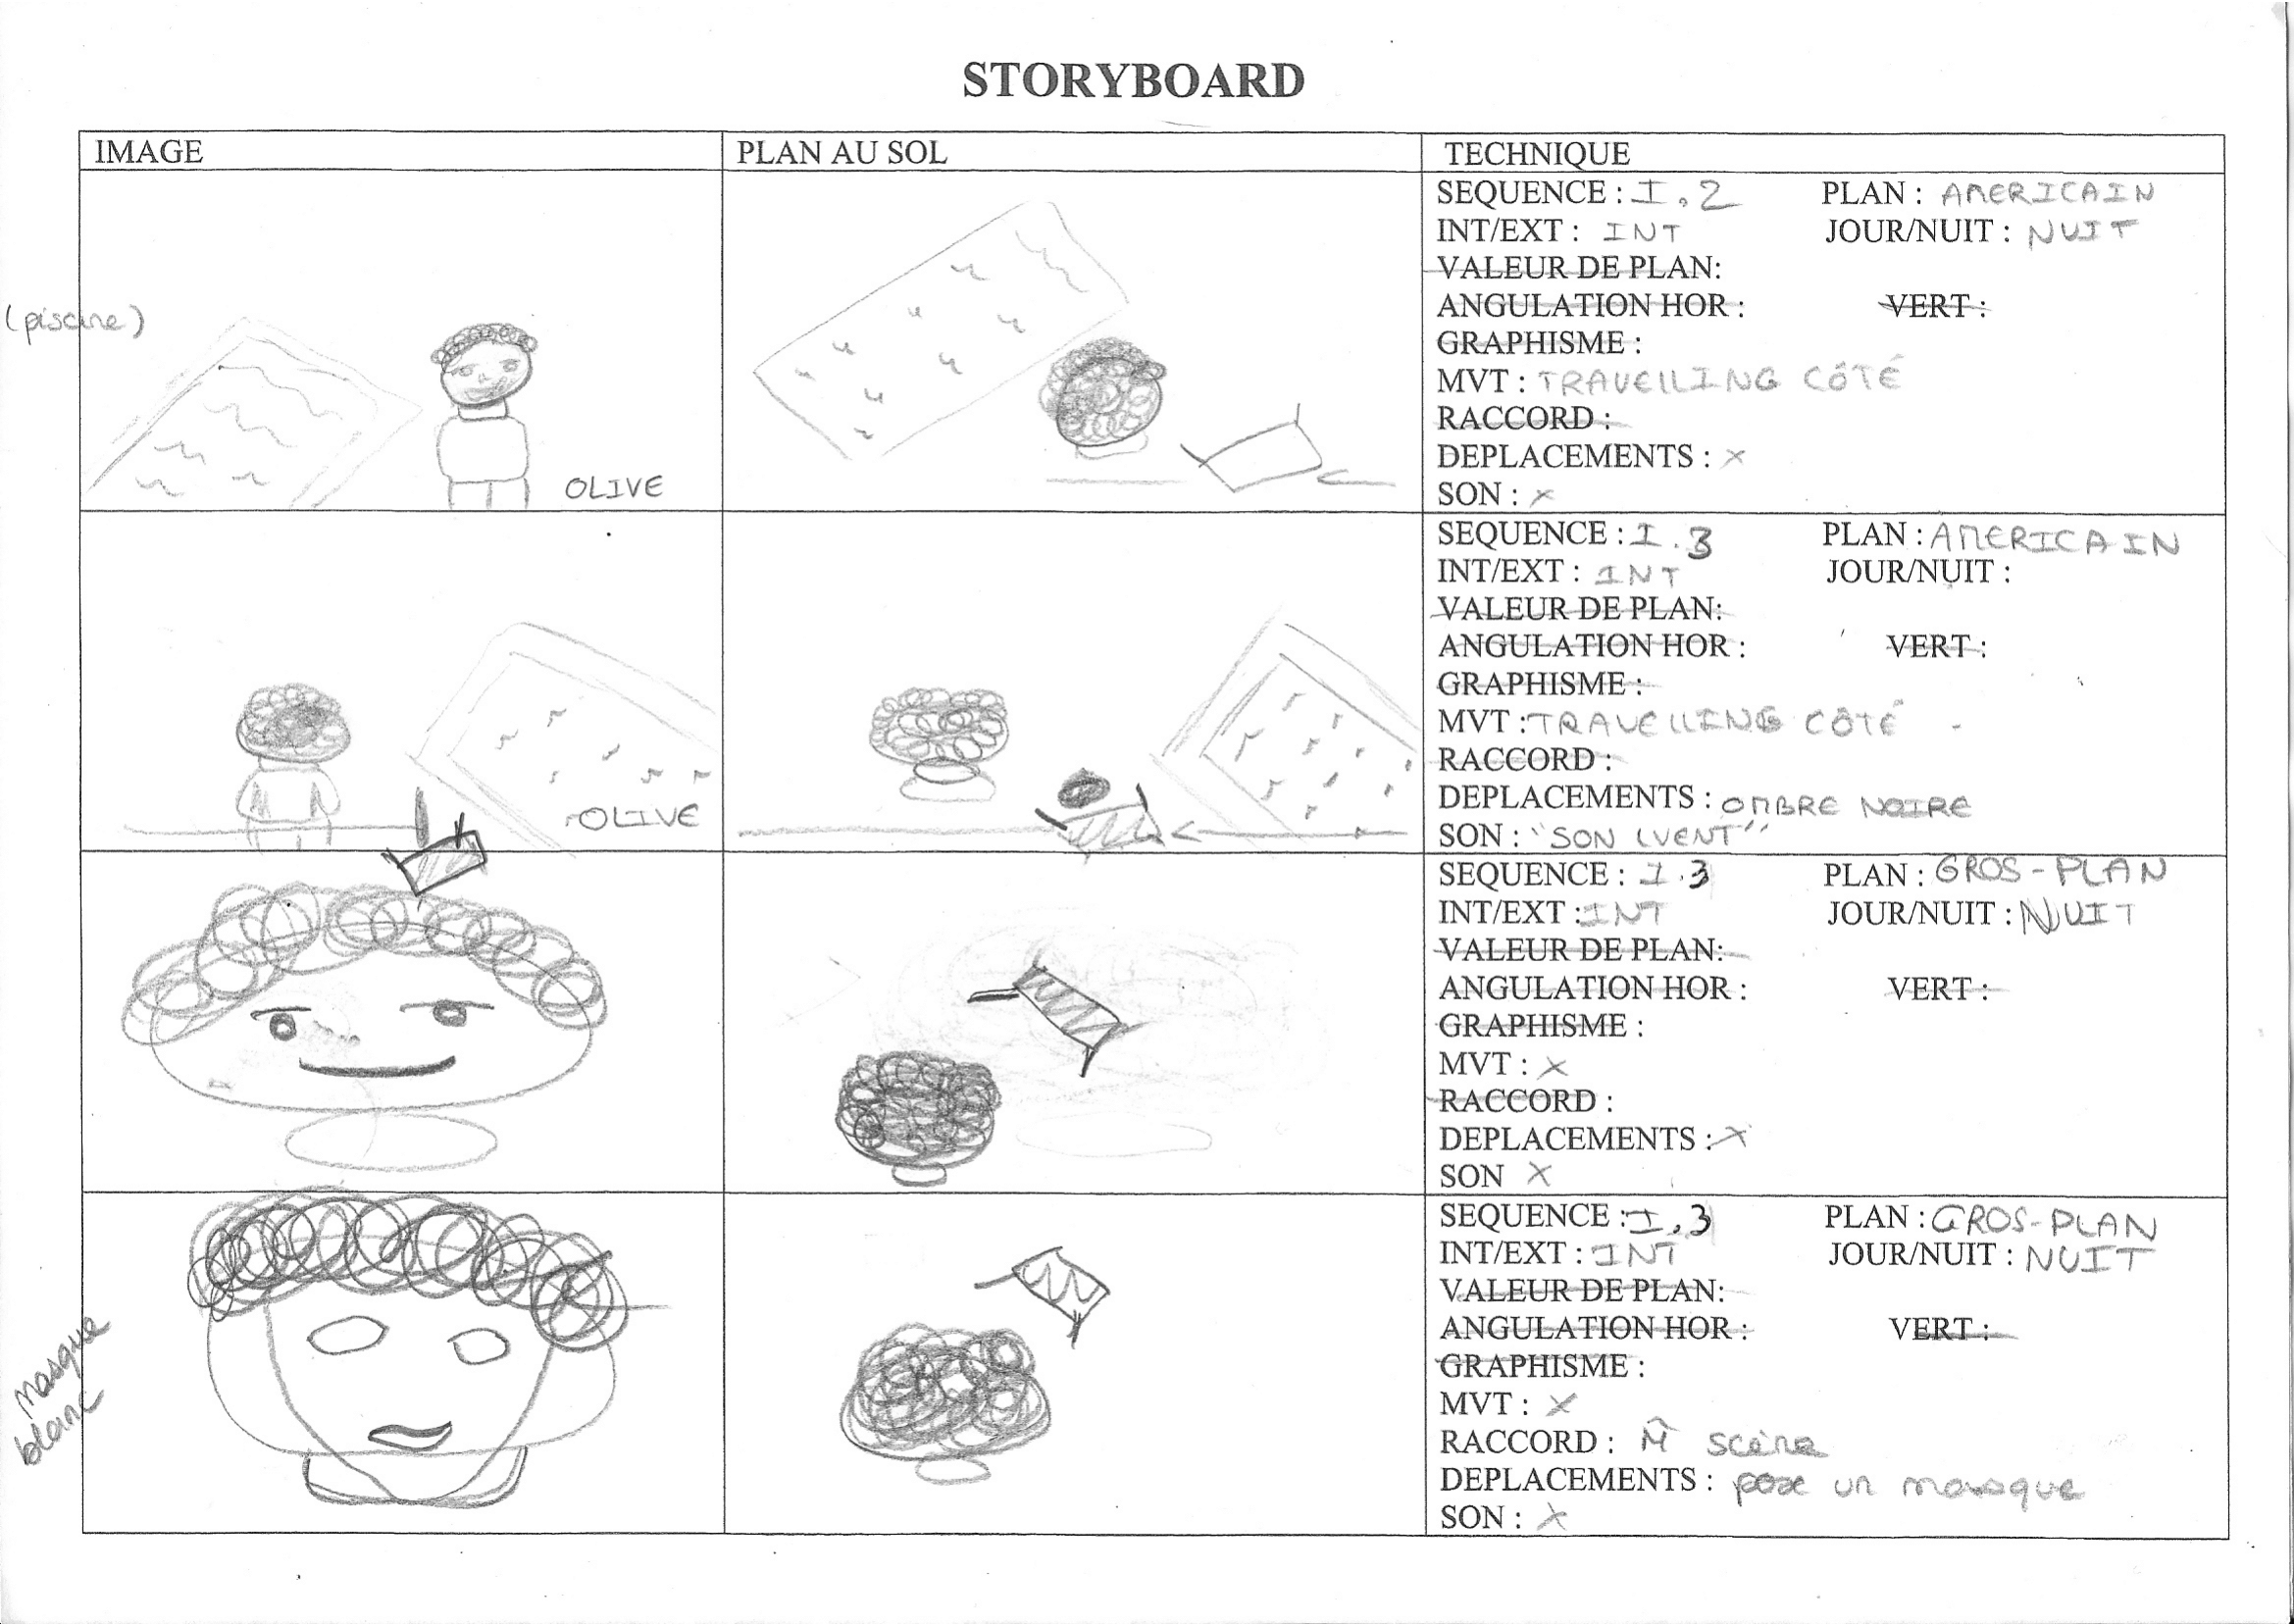 STORYBOARD
IMAGE PLAN AU SOL TECHNIQUE
(piscine)
OLIVE
SEQUENCE : I.2 PLAN : AMERICAIN
INT/EXT : INT JOUR/NUIT : NUIT
VALEUR DE PLAN:
ANGULATION HOR : VERT :
GRAPHISME :
MVT : TRAVELLING CÔTÉ
RACCORD :
DEPLACEMENTS : x
SON : x
OLIVE
SEQUENCE : I.3 PLAN : AMERICAIN
INT/EXT : INT JOUR/NUIT :
VALEUR DE PLAN:
ANGULATION HOR : VERT :
GRAPHISME :
MVT : TRAVELLING CÔTÉ
RACCORD :
DEPLACEMENTS : OMBRE NOIRE
SON : "SON (VENT"
SEQUENCE : I.3 PLAN : GROS-PLAN
INT/EXT : INT JOUR/NUIT : NUIT
VALEUR DE PLAN:
ANGULATION HOR : VERT :
GRAPHISME :
MVT : x
RACCORD :
DEPLACEMENTS : x
SON x
masque
blanc
SEQUENCE : I.3 PLAN : GROS-PLAN
INT/EXT : INT JOUR/NUIT : NUIT
VALEUR DE PLAN:
ANGULATION HOR : VERT :
GRAPHISME :
MVT : x
RACCORD : M̂ scène
DEPLACEMENTS : pose un masque
SON : x